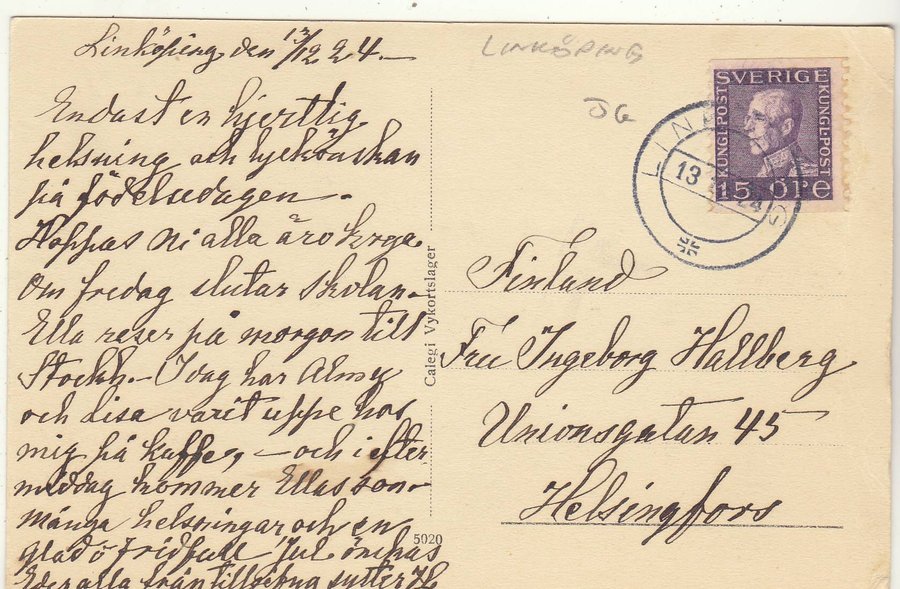 Linköping den 13/12 24.–
LINKÖPING
JG
SVERIGE
KUNGL.POST
KUNGL.POST
15 ÖRE
LIN G
13 24
Endast en hjerttlig
helsning och lyckönskan
på födelsedagen.
Hoppas Ni alla äro kryga.
Om fredag slutar skolan.
Ella reser på morgon till
Stockh.– I dag har Almy
och Lisa varit uppe hos
mig på kaffe, – och i efter
middag kommer Ellas son –
Många helsningar och en
glad o fridfull Jul önskas
Eder alla från
Calegi Vykortslager
5020
Finland
Fru Ingeborg Hallberg
Unionsgatan 45
Helsingfors